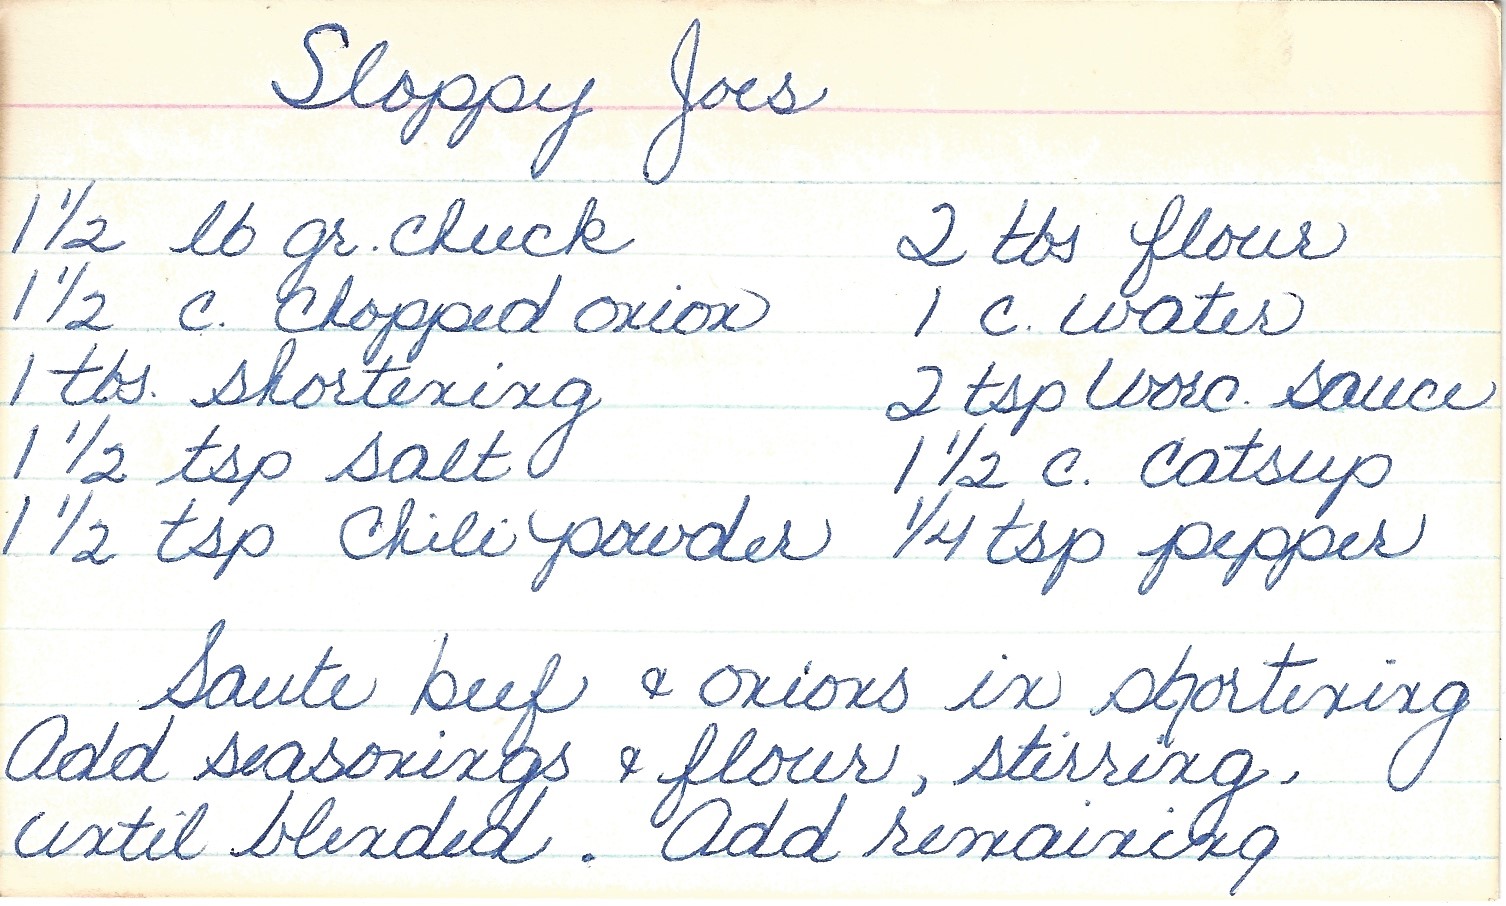 Sloppy Joes
1 1/2 lb gr. chuck
1 1/2 c. chopped onion
1 tbs. shortening
1 1/2 tsp salt
1 1/2 tsp chili powder
2 tbs flour
1 c. water
2 tsp Worc. sauce
1 1/2 c. catsup
1/4 tsp pepper
Saute beef & onions in shortening
Add seasonings & flour, stirring,
until blended. Add remaining